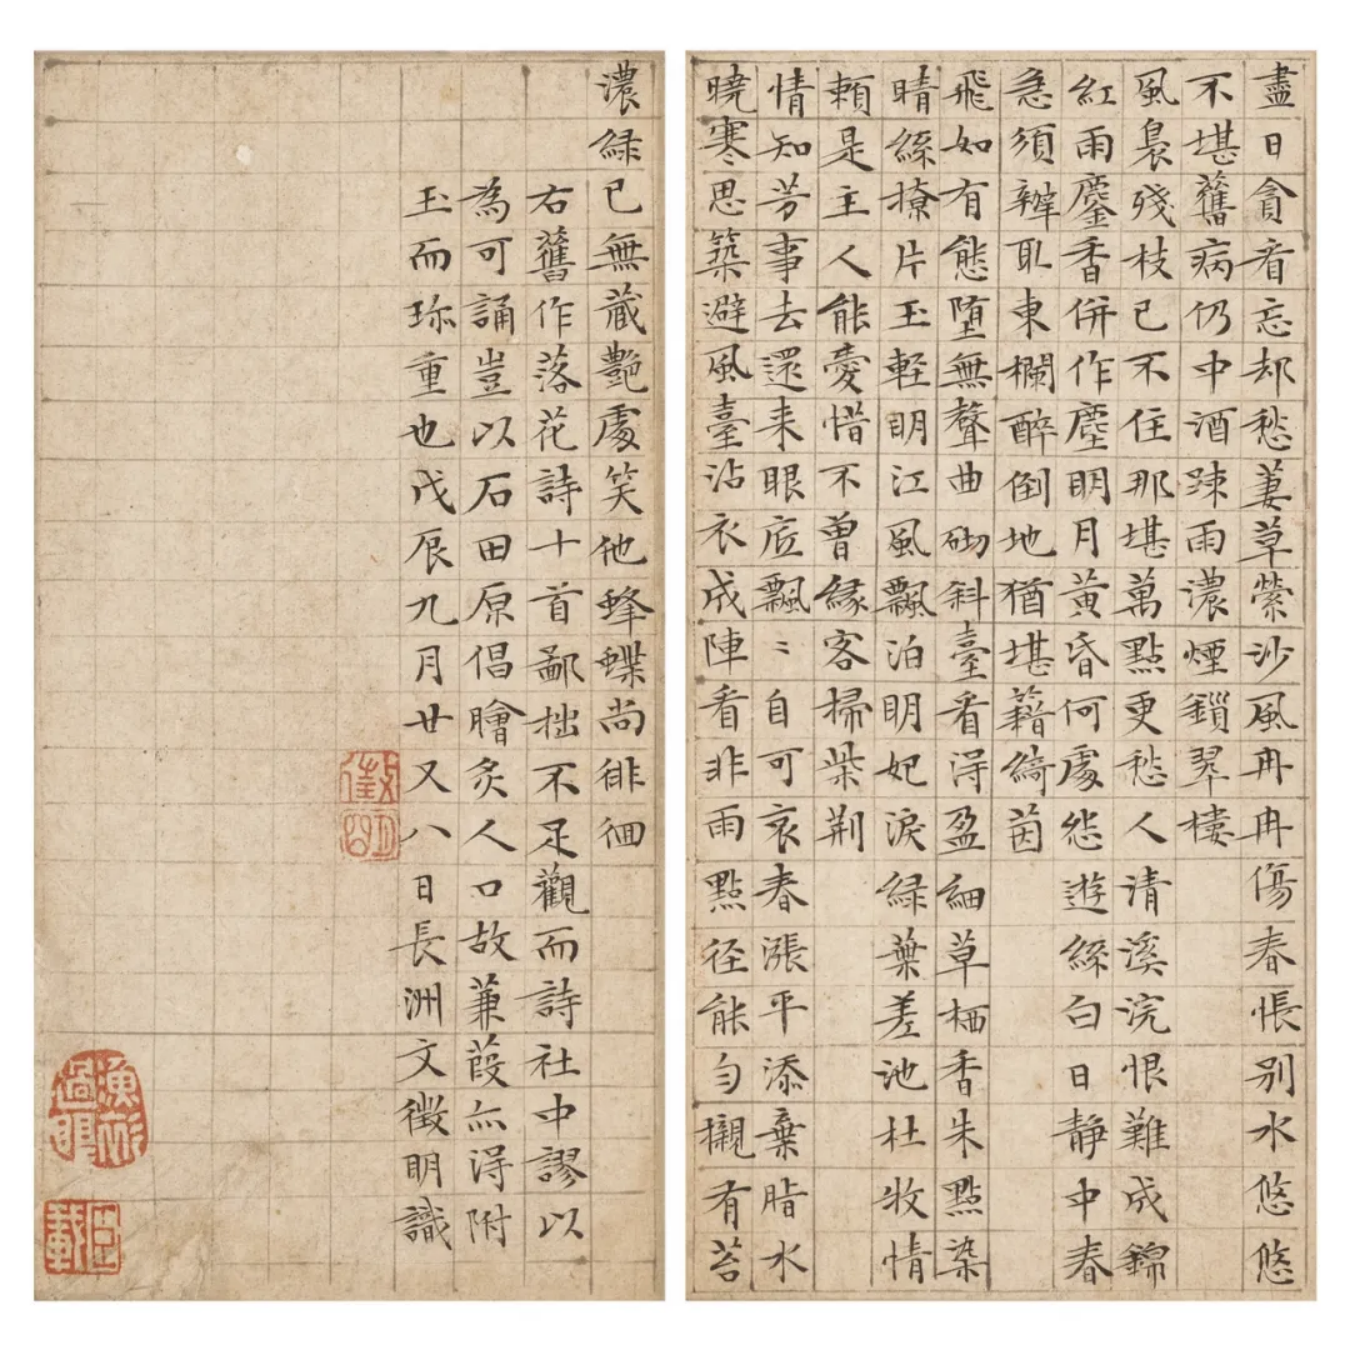 盡日貪看忘却愁萋草縈沙風冉冉傷春悵别水悠悠
不堪舊病仍中酒踈雨濃煙鎻翠棲
風裊殘枝已不住那堪萬點更愁人清溪浣恨難成錦
紅雨鏖香併作塵明月黃昏何處怨遊絲白日静中春
急須辦取東欄醉倒地猶堪藉綺茵
飛如有態墮無聲曲砌斜臺看得盈細草栖香朱點染
晴絲撩片玉軽明江風飄泊明妃淚緑葉差池杜牧情
頼是主人能愛惜不曽緣客掃柴荆
情知芳事去還来眼底飄〻自可哀春漲平添棄脂水
曉寒思築避風臺沾衣成陣看非雨點径能勻襯有苔
濃緑已無藏艷處笑他蜂蝶尚徘徊
右舊作落花詩十首鄙拙不足觀而詩社中謬以
為可誦豈以石田原倡膾炙人口故蒹葭亦得附
玉而珎重也戊辰九月廿又八日長洲文徵明識
徵明